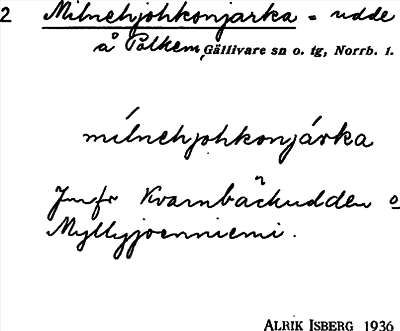 2 Milnehjohkonjarka = udde
å Polkem, Gällivare sn o. tg, Norrb. l.
mílnehjohkonjárka
Jmfr Kvarnbäckudden o
Myllyjoenniemi.
ALRIK ISBERG 1936